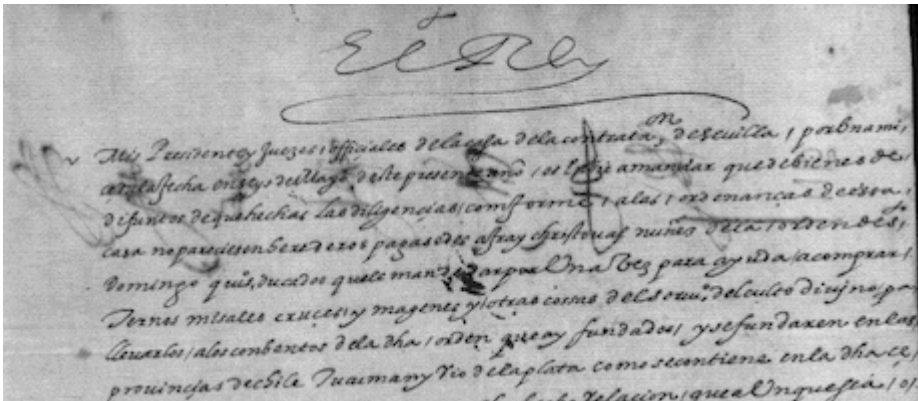 El Rey
Mis Presidente y Juezes officiales de la casa de la contrataon de seuilla, por Una mi,
çedula fecha en seys de Mayo deste presente año, os enbie a mandar que de bienes de
difuntos de que hechas las diligencias, conforme, a las, ordenanças de essa,
casa no pareciesen herederos pagasedes a fray christoual nuñes de la, orden de s.to
Domingo quis. ducados que le mande dar por Una Vez para ayuda, a comprar,
Ternos misales cruces, y magenes y, otras cossas del seruio. del culto diuino, pa
lleuarlos, a los conbentos de la dha, orden que ay fundados, y se fundaren en las
prouincias de chile Tucuman y Rio de la plata como se contiene en la dha ce,
relacion, que aUnque sea